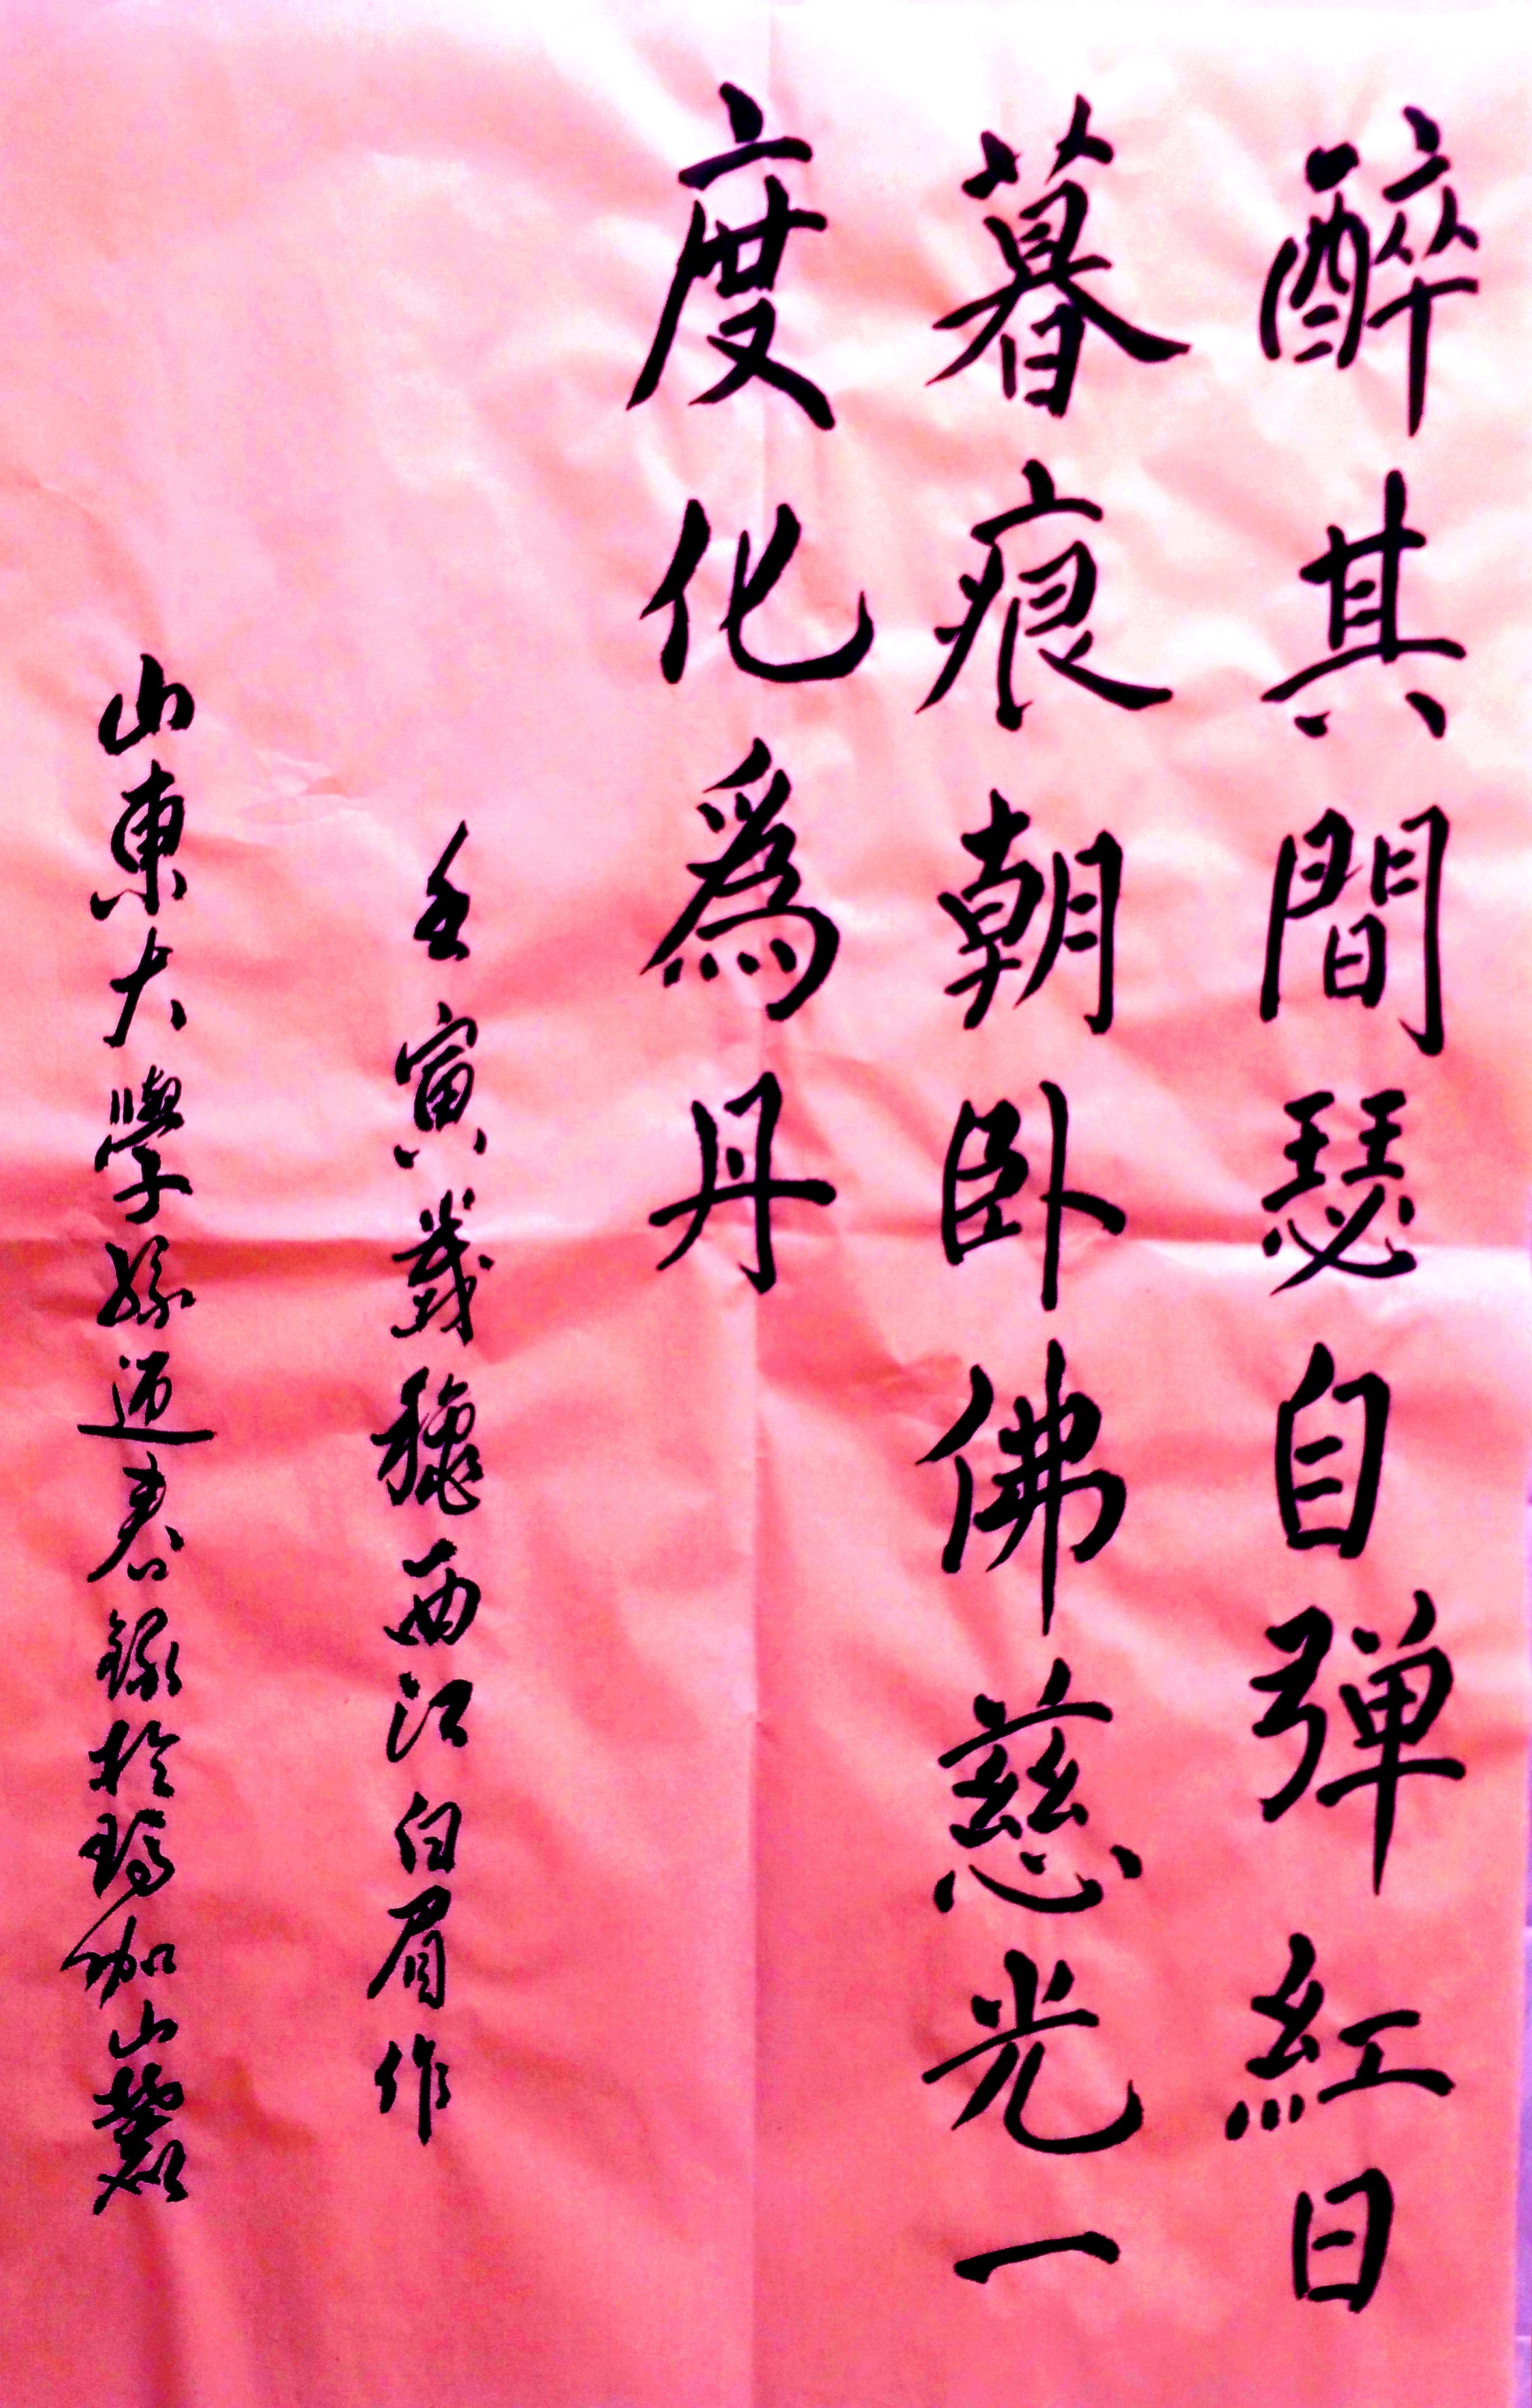 醉其間瑟自彈紅日
暮痕朝卧佛慈光一
度化爲丹
壬寅歲龝西江白眉作
山東大學孫迺書錄於瑪珈山麓